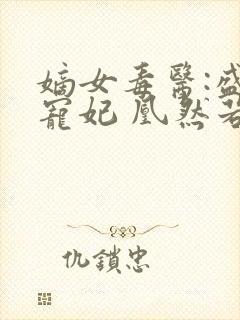 嫡女毒醫:盛
寵妃 凰然若
仇鎖忠